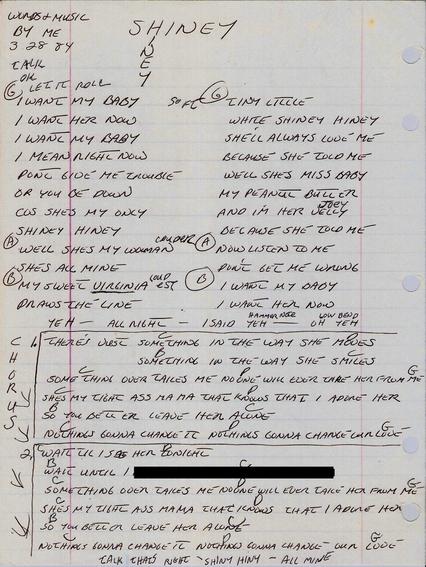 WORDS & MUSIC
BY ME
3 28 84
SHINEY
N
E
Y
TALK
OK
G LET IT ROLL
I WANT MY BABY
I WANT HER NOW
I WANT MY BABY
I MEAN RIGHT NOW
DONT GIVE ME TROUBLE
OR YOU BE DOWN
COS SHES MY ONLY
SHINEY HINEY
A WELL SHES MY WOMAN LOUDER
SHES ALL MINE
B MY SWEET VIRGINIA LOUD EST
DRAWS THE LINE
SOFT G TINY LITTLE
WHITE SHINEY HINEY
SHE'LL ALWAYS LOVE ME
BECAUSE SHE TOLD ME
WELL SHES MISS BABY
MY PEANUT BUTTER
AND IM HER JELLY JOEY
BECAUSE SHE TOLD ME
A NOW LISTEN TO ME
DON'T GET ME WRONG
B I WANT MY BABY
I WANT HER NOW
YEH — ALL RIGHT — I SAID YEH — OH YEH
HAMMER NOTE LOW BEND
CHORUS
1. THERE'S JUST SOMETHING IN THE WAY SHE MOVES
B C
SOMETHING IN THE WAY SHE SMILES
C D G
SOMETHING OVER TAKES ME NO ONE WILL EVER TAKE HER FROM ME
C D
SHES MY TIGHT ASS MAMA THAT KNOWS THAT I ADORE HER
B C
SO YOU BETTER LEAVE HER ALONE
C D G
NOTHINGS GONNA CHANGE IT NOTHINGS GONNA CHANGE OUR LOVE
2. WAIT TIL I SEE HER TONIGHT
B C
WAIT UNTIL I
C D G
SOMETHING OVER TAKES ME NO ONE WILL EVER TAKE HER FROM ME
C D
SHE'S MY TIGHT ASS MAMA THAT KNOWS THAT I ADORE HER
B C
SO YOU BETTER LEAVE HER ALONE
C D G
NOTHINGS GONNA CHANGE IT NOTHINGS GONNA CHANGE OUR LOVE
TALK THAT'S RIGHT - SHINY HINY - ALL MINE